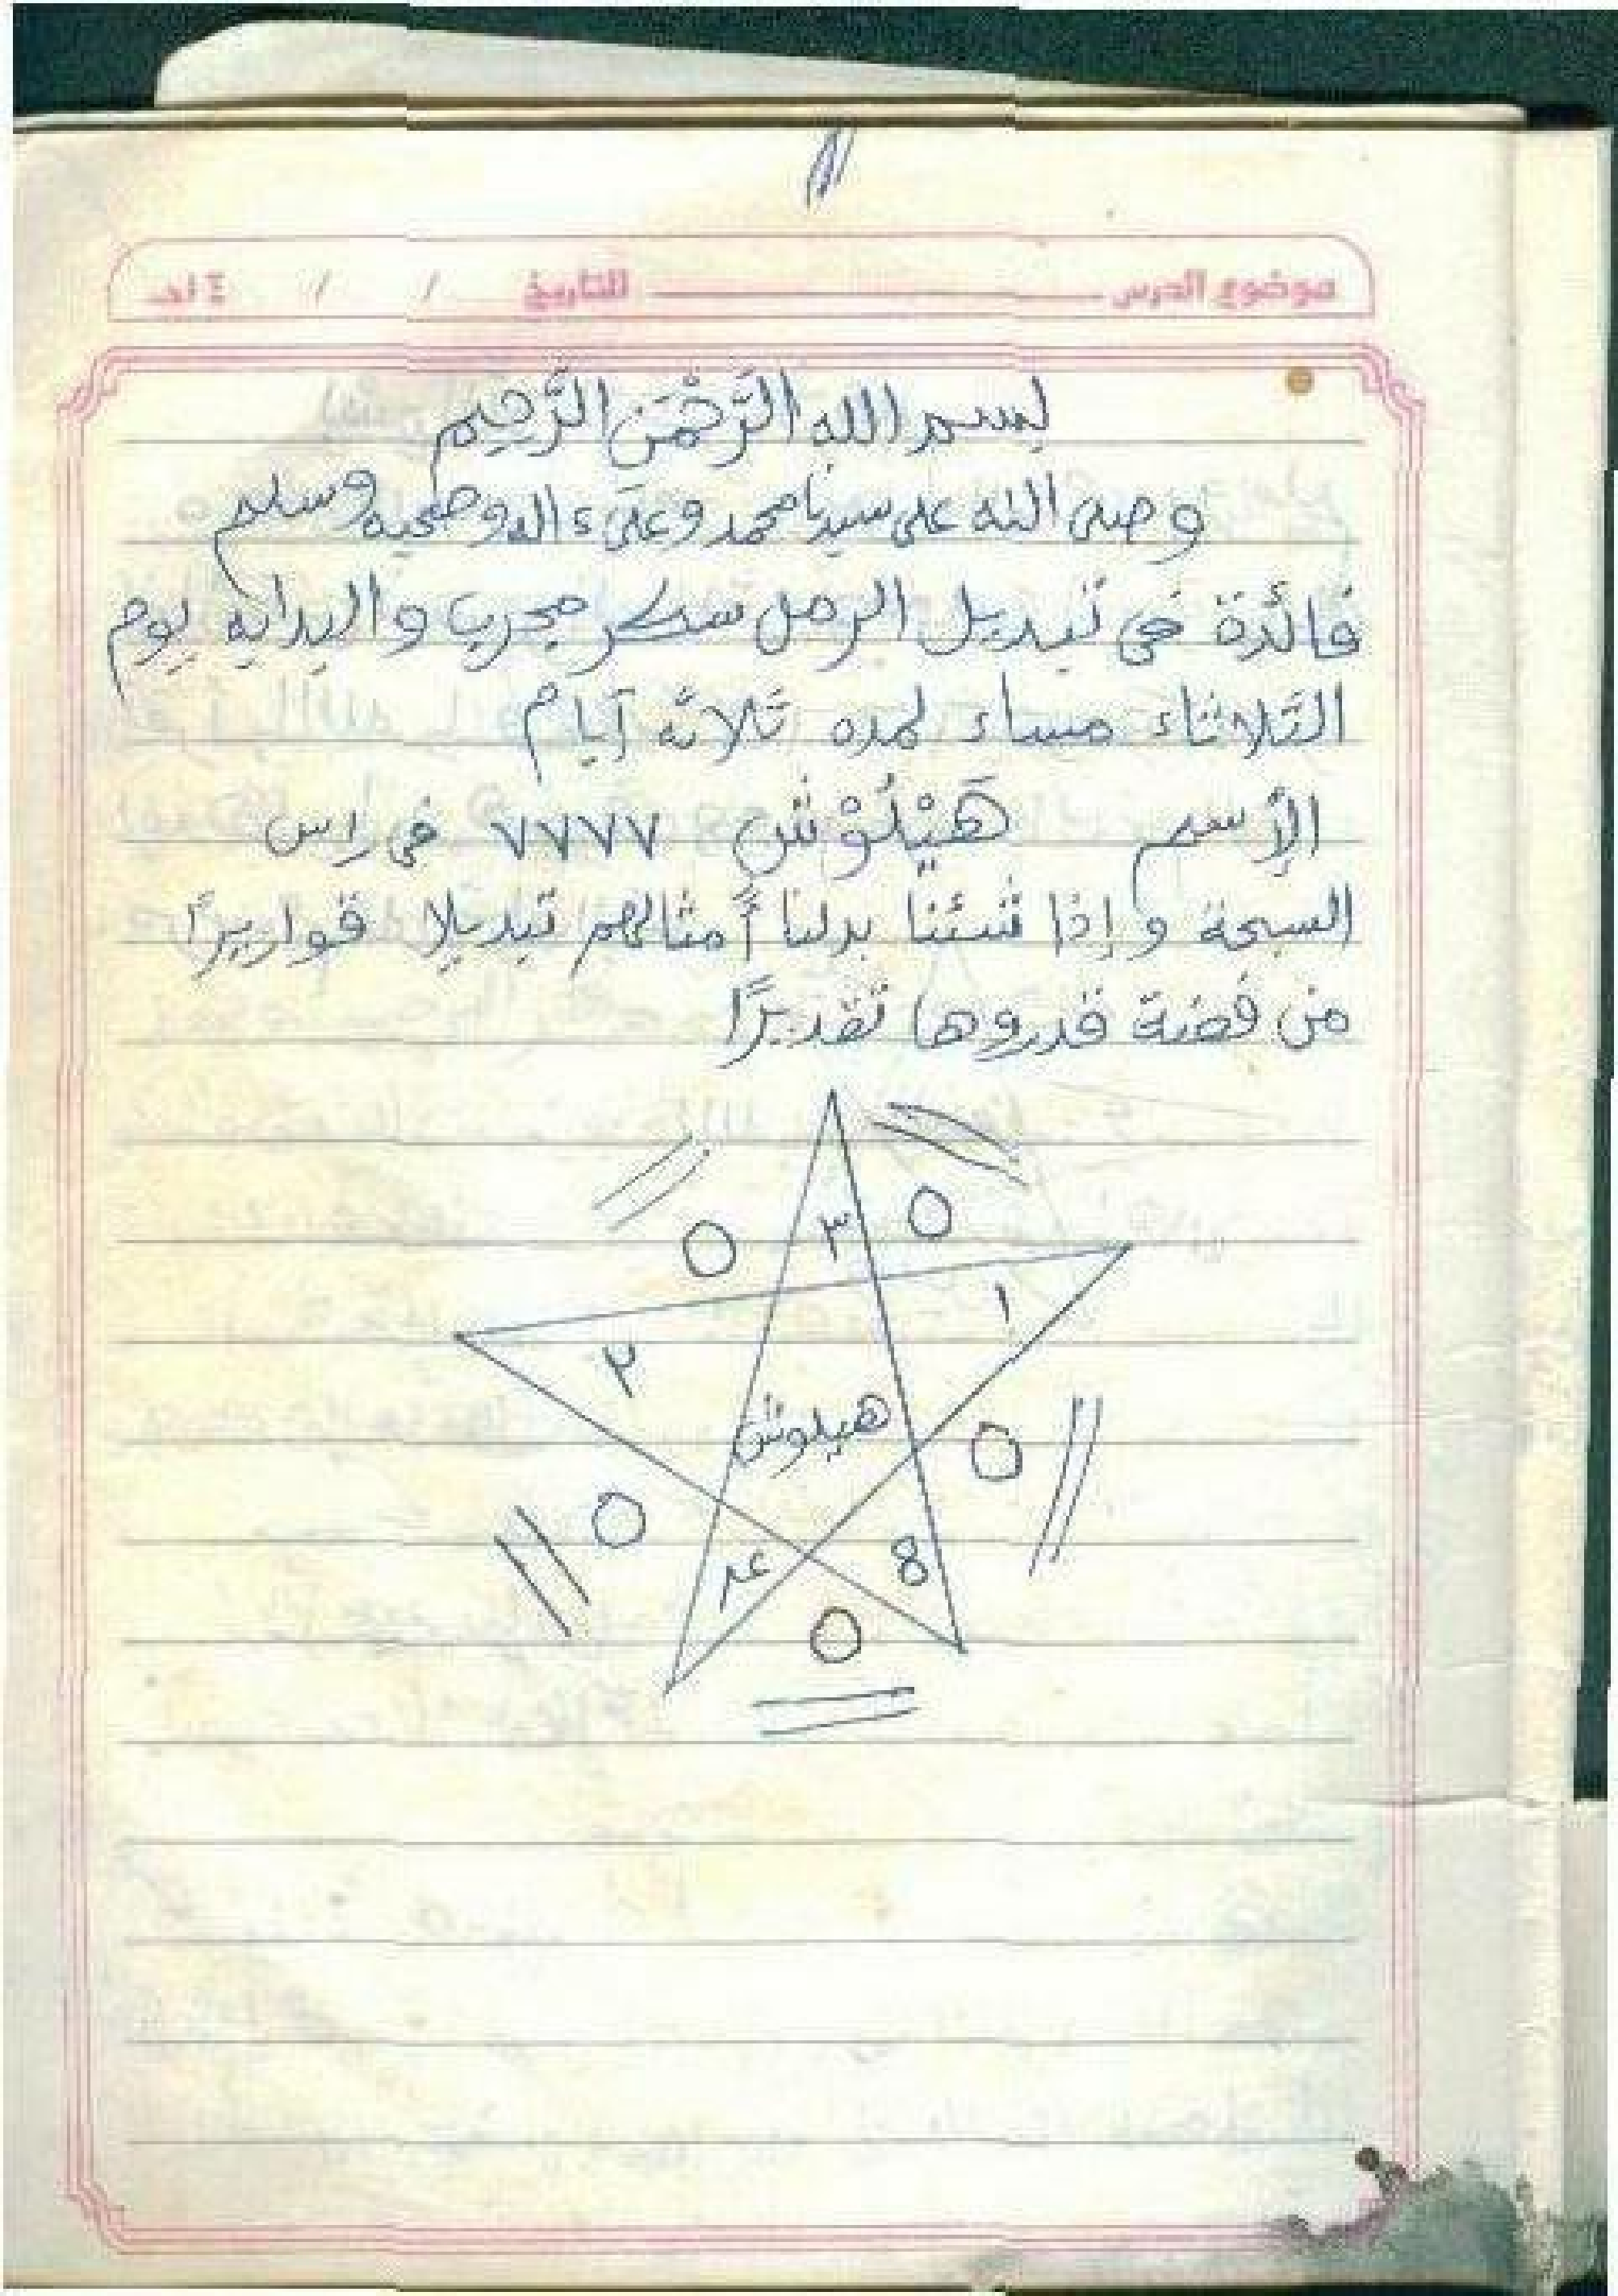 موضوع الدرس التاريخ / / ١٤هـ
بسم الله الرَّحْمَنِ الرَّحِيم
وصلى الله على سيدنا محمد وعلىء اله وصحبه وسلم
فائدة فى تبديل الرمل سكر مجرب والبدايه يوم
الثلاثاء مساء لمده ثلاثه آيام
الأسم هَيْلُوْش ٧٧٧٧ فى راس
السبحة وإذا شئنا بدلنا أمثالهم تبديلا قواريرًا
من فضة قدروها تقديرًا
٣
١
٢
هيلوش
٤
8